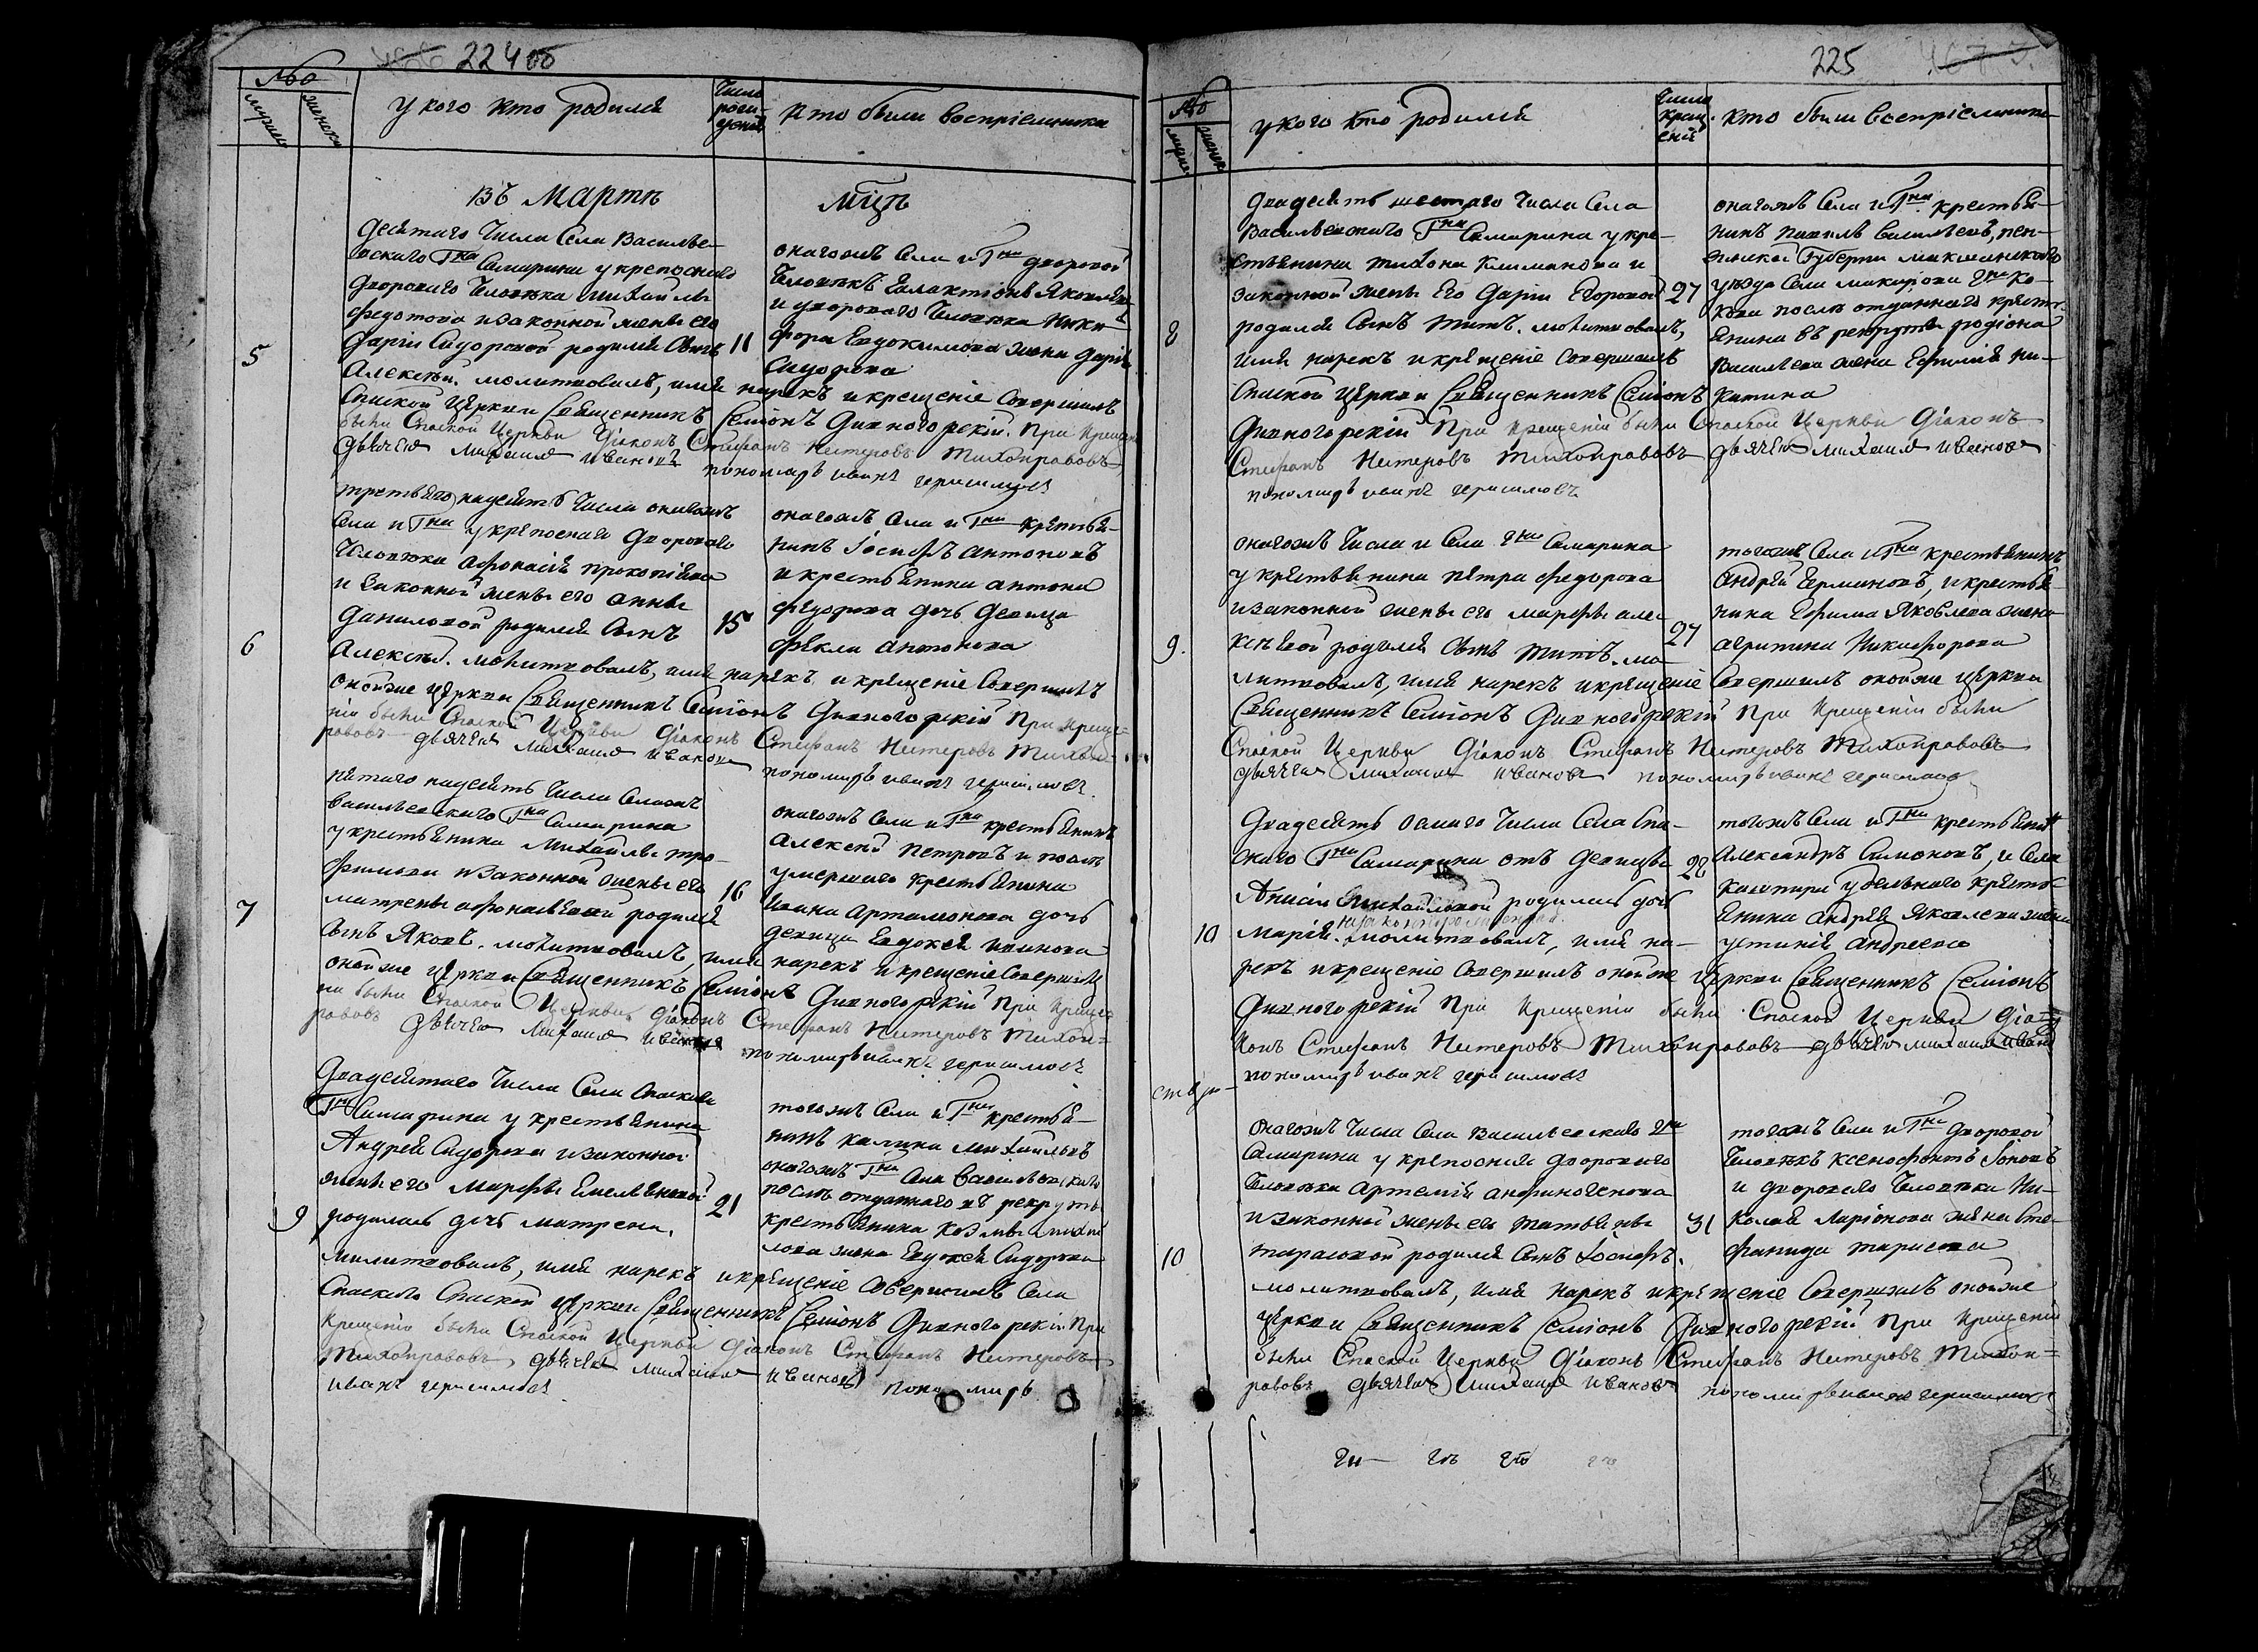 224 об
№
мужес
женска
у кого кто родился
Число рожденія
кто были воспріемники
Въ Мартѣ мцѣ
Десятаго Числа Села Василье-
вскаго Гна Самарина у крепоснаго
дворового Человѣка Михайлы
федотова и законной жены его
5
Дарьи Сидоровой родился Сынъ 11
Алексѣй. молитвовалъ, имя нарекъ и крещеніе Совершилъ
Спаской церкви Священникъ Семіонъ Дивногорскій. При крещеніи
были Спаской Церкви Діаконъ Стефанъ Нестеровъ Тихонравовъ
дьячекъ Михаилъ Ивановъ пономарь иванъ герасимовъ
онагожъ Села и Гна дворовой
Человѣкъ Галактіонъ Яковлевъ
и дворового Человѣка Ники-
фора Евдокимова жена Дарья
Сидорова
третьяго надесять Числа онагожъ
Села и Гна у крепоснаго дворового
Человѣка Афонасія прокопіева
и Законной жены его анны
Даниловой родился Сынъ 15
6
Алексѣй. молитвовалъ, имя нарекъ и крещеніе Совершилъ
онойже церкви Священникъ Семіонъ Дивногорскій При креще-
ніи были Спаской Церкви Діаконъ Стефанъ Нестеровъ Тихон-
равовъ дьячекъ Михаилъ Ивановъ
пономарь иванъ герасимовъ.
онагожъ Села и Гна крестья-
нинъ Іосифъ антоновъ
и крестьянина антона
федорова дочь девица
фекла антонова
пятаго надесять Числа Селажъ
васильевскаго Гна Самарина
у крестьянина Михайлы тро-
фимова и Законной жены его 16
7
матрены афонасьевой родился
Сынъ Яковъ. молитвовалъ, имя нарекъ и крещеніе Совершилъ
онойже церкви Священникъ Семіонъ Дивногорскій При креще-
ніи были Спаской Церкви Діаконъ Стефанъ Нестеровъ Тихон-
равовъ дьячекъ Михаилъ Ивановъ
пономарь иванъ герасимовъ
онагожъ Села и Гна крестьянинъ
алексей петровъ и послѣ
умершаго крестьянина
Ивана артамонова дочь
девица Евдокея иванова
Двадесятаго Числа Села Спаскаго
Гна Самарина у крестьянина
Андрея Сидорова и законной
жены его Марфы Емельяновой 21
9
родилась дочь матрена.
молитвовалъ, имя нарекъ и крещеніе Совершилъ Села
Спаскаго Спаской церкви Священникъ Семіонъ Дивногорскій При
Крещеніи были Спаской Церкви Діаконъ Стефанъ Нестеровъ
Тихонравовъ дьячекъ Михаилъ Ивановъ пономарь
иванъ герасимовъ
тогожъ Села и Гна крестья-
нинъ калина Михайловъ
онагожъ Гна Села васильевскаго
послѣ отданнаго въ рекруты
крестьянина Козмы михай
лова жена Евдокея Сидорова
225
№
мужес
женск
у кого кто родился
Число крещеній
кто были воспріемники
Двадесять шестаго Числа Села
Васильевскаго Гна Самарина у кре-
стьянина тихона климанова и
законной жены Его Дарьи Егоровой 27
8
родился Сынъ титъ. молитвовалъ,
имя нарекъ и крещеніе Совершилъ
Спаской церкви Священникъ Семіонъ
Дивногорскій При крещеніи были Спаской Церкви Діаконъ
Стефанъ Нестеровъ Тихонравовъ дьячекъ михаилъ ивановъ
пономарь иванъ герасимовъ
онагожъ Села и Гна крестья-
нинъ павелъ васильевъ, пен-
зенской Губерніи мокшанскаго
уѣзда Села макарова Гна Ко-
кова послѣ отданнаго крестья-
янина въ рекруты родіона
Васильева жена Ефимія ни-
китина
онагожъ Числа и Села Гна Самарина
у крестьянина пѣтра федорова
и законной жены его марфы але
9.
ксѣевой родился Сынъ титъ. мо- 27
литвовалъ, имя нарекъ и крещеніе Совершилъ онойже церкви
Священникъ Семіонъ Дивногорскій При Крещеніи были
Спаской Церкви Діаконъ Стефанъ Нестеровъ Тихонравовъ
дьячекъ михаилъ ивановъ пономарь иванъ герасимовъ
тогожъ Села и Гна крестьянинъ
андрей Ерминовъ, и крестья-
нина Ефима Яковлева жена
агрипина Никифорова
Двадесять осмаго Числа Села Спа-
скаго Гна Самарина отъ девицы 28
Анисьи Михайловой родилась дочь
незаконнорожденная.
10
Марія. молитвовалъ, имя на-
рекъ и крещеніе Совершилъ онойже церкви Священникъ Семіонъ
Дивногорскій При Крещеніи были Спаской Церкви Діа-
конъ Стефанъ Нестеровъ Тихонравовъ дьячекъ михаилъ иванов
пономарь иванъ герасимовъ
тогожъ Села и Гна крестьянин
Александръ Симоновъ, и Села
удельнаго кресть-
янина андрея Яковлева жена
устинія андреева
онагожъ Числа Села Васильевскаго Гна
Самарина у крепоснаго дворового
Человѣка Артемія анфиногенова
и законной жены его татьяны 31
10
тарасовой родился Сынъ Іосифъ.
молитвовалъ, имя нарекъ и крещеніе Совершилъ онойже
церкви Священникъ Семіонъ Дивногорскій При Крещеніи
были Спаской Церкви Діаконъ Стефанъ Нестеровъ Тихон-
равовъ дьячекъ Михаилъ ивановъ пономарь иванъ герасимовъ
тогожъ Села и Гна дворовой
Человѣкъ ксенофонтъ Іоновъ
и дворового Человѣка Ни-
колая ларіонова жена Сте-
фанида тарасова